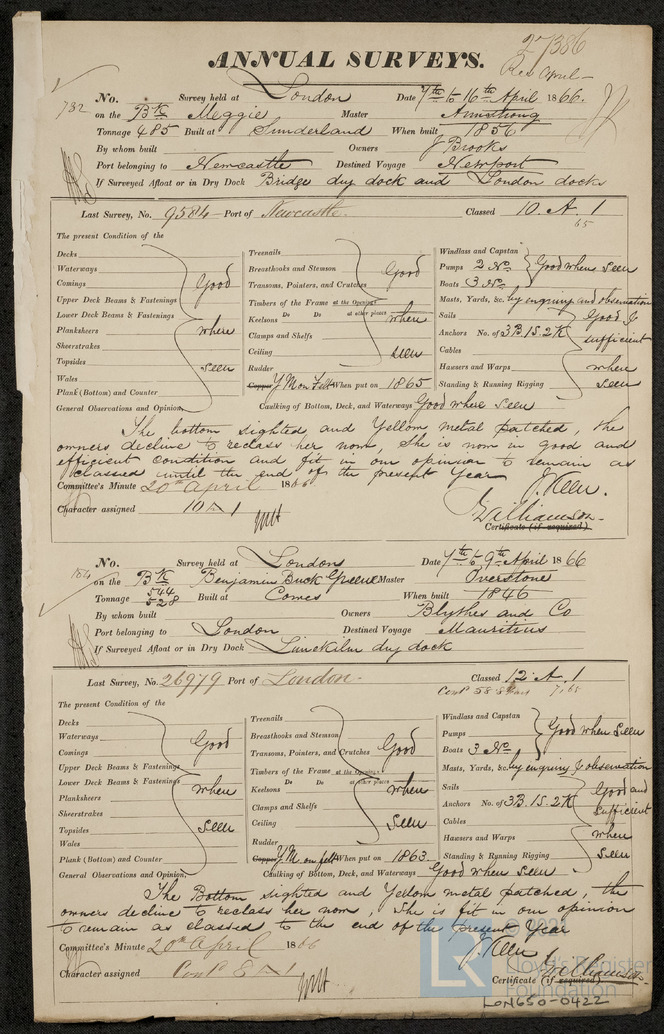 27386
ANNUAL SURVEYS.
Rec April
732 No. Survey held at London Date 7th to 16th April 1866.
on the Bk Meggie Master Armstrong
Tonnage 485 Built at Sunderland When built 1856
By whom built Owners J Brooks
Port belonging to Newcastle Destined Voyage Newport
If Surveyed Afloat or in Dry Dock Bridge dry dock and London docks
Last Survey, No. 9584 Port of Newcastle. Classed 10. A. 1
65
The present Condition of the
Decks Treenails Windlass and Capstan
Waterways Breasthooks and Stemson Good Pumps 2 No. Good when seen
Comings Good Transoms, Pointers, and Crutches Boats 3 No.
Upper Deck Beams & Fastenings Timbers of the Frame at the Openings Masts, Yards, &c. by enquiry and observation
Lower Deck Beams & Fastenings Do Do at other places
Planksheers where Keelsons when Sails Good &
Sheerstrakes Clamps and Shelfs Anchors No. of 3B. 1S. 2K sufficient
Topsides seen Ceiling seen Cables
Wales Rudder Hawsers and Warps when
Plank (Bottom) and Counter Copper YM on Felt When put on 1865 Standing & Running Rigging seen
General Observations and Opinion, Caulking of Bottom, Deck, and Waterways Good where seen
The bottom sighted and Yellow metal patched, the
owners decline to reclass her now, She is now in good and
efficient condition and fit in our opinion to remain as
classed until the end of the present Year
Committee's Minute 20th April 1866
Character assigned 10 A 1
Williamson
Certificate (if required)
No. Survey held at London Date 7th to 9th April 1866
on the Bk Benjamin Buck Greene Master Overstone
Tonnage 544 528 Built at Cowes When built 1846
By whom built Owners Blythes and Co
Port belonging to London Destined Voyage Mauritius
If Surveyed Afloat or in Dry Dock Limekiln dry dock
Last Survey, No. 26979 Port of London. Classed 12. A. 1
Cont 58 8 Years 7,65
The present Condition of the
Decks Treenails Windlass and Capstan
Waterways Good Breasthooks and Stemson Pumps Good when seen
Comings Transoms, Pointers, and Crutches Good Boats 3 No.
Upper Deck Beams & Fastenings Timbers of the Frame at the Openings Masts, Yards, &c. by enquiry & observation
Lower Deck Beams & Fastenings Do Do at other places
Planksheers when Keelsons when Sails Good and
Sheerstrakes Clamps and Shelfs Anchors No. of 3B. 1S. 2K sufficient
Topsides seen Ceiling seen Cables
Wales Rudder Hawsers and Warps when
Plank (Bottom) and Counter Copper YM on felt When put on 1863 Standing & Running Rigging seen
General Observations and Opinion, Caulking of Bottom, Deck, and Waterways Good when seen
The Bottom sighted and Yellow metal patched, the
owners decline to reclass her now, She is fit in our opinion
to remain as classed to the end of the present Year
Committee's Minute 20th April 1866
Character assigned Cont 8 A 1
Williamson
Certificate (if required)
LR © 202
Lloyd's Register
Foundation
LON650-0422